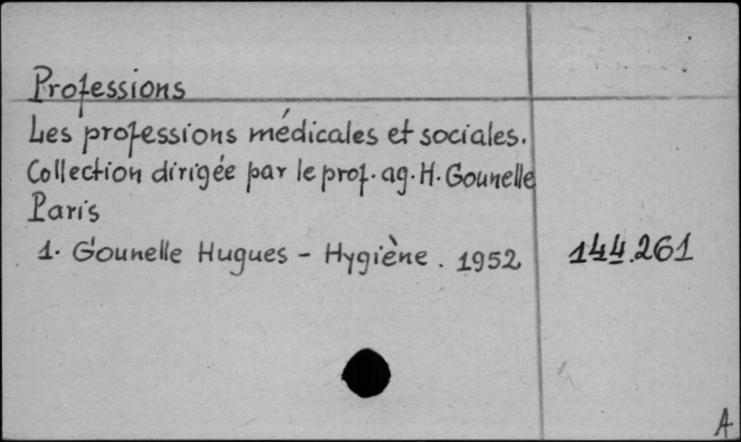 Professions
Les professions médicales et sociales.
Collection dirigée par le prof. ag. H. Gounelle
Paris
1. Gounelle Hugues - Hygiène. 1952 144.261
A